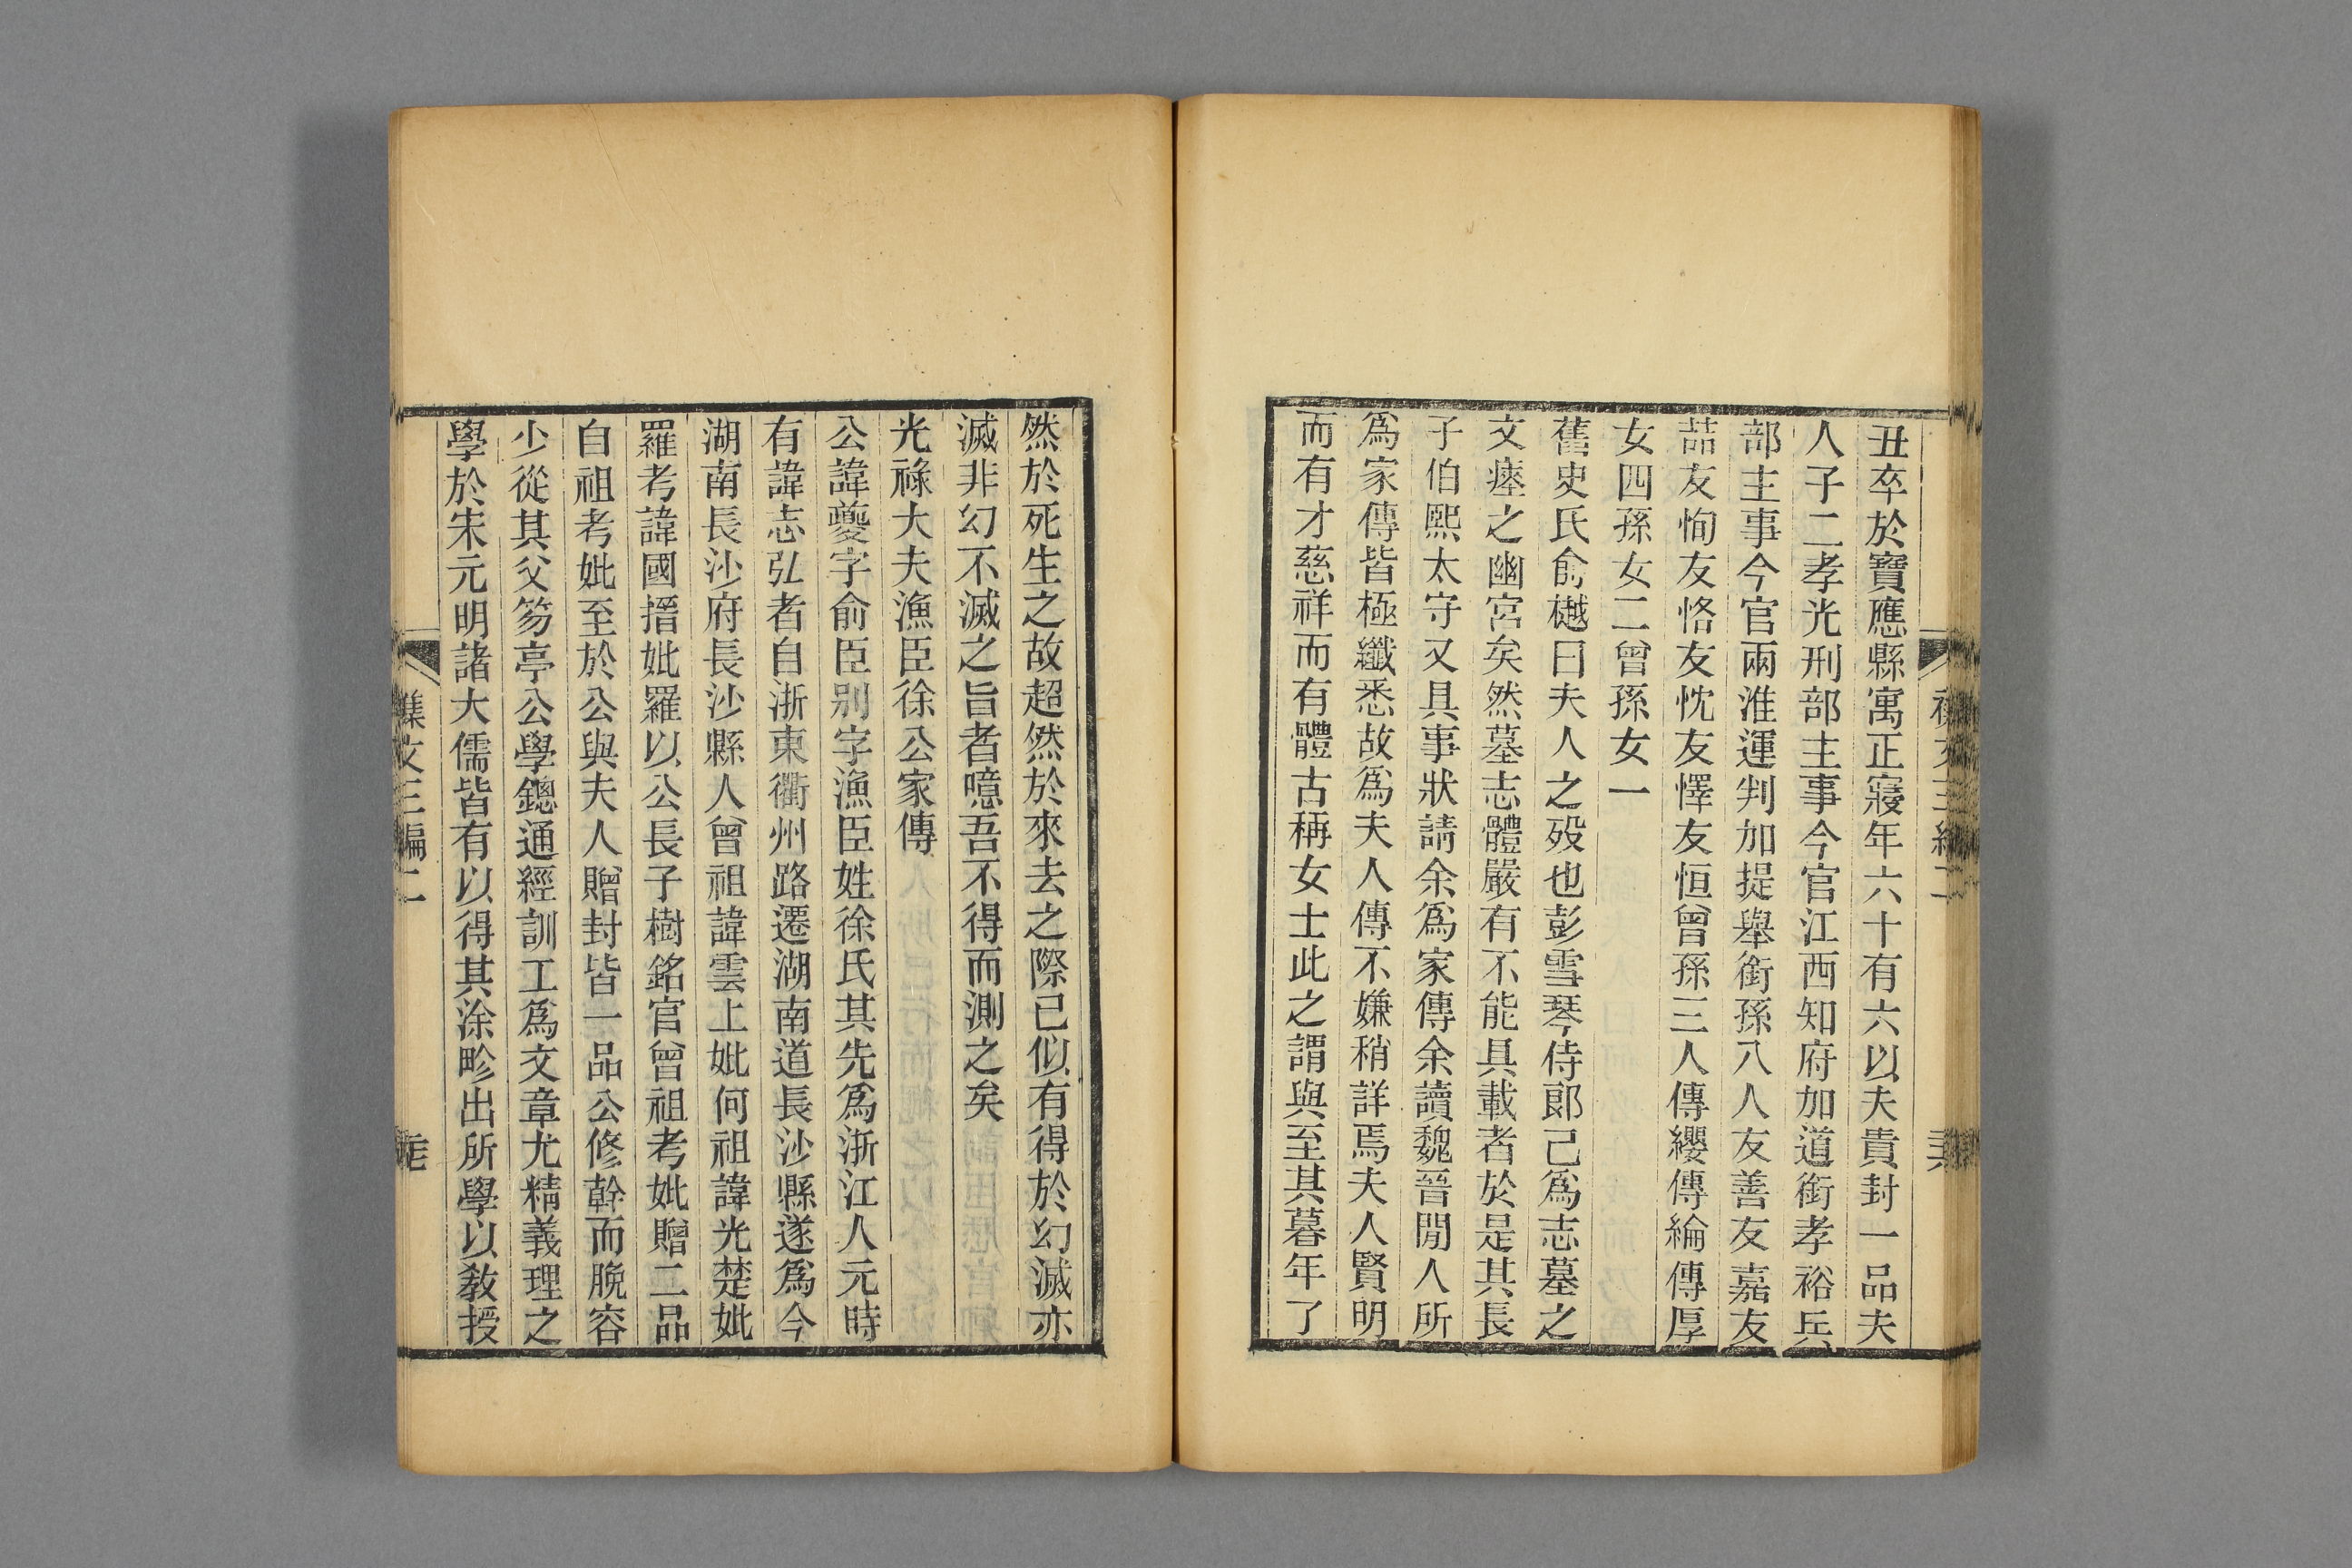 丑卒於寶應縣寓正寢年六十有六以夫貴封一品夫
人子二孝光刑部主事今官江西知府加道銜孝裕兵
部主事今官兩淮運判加提舉銜孫八人友善友嘉友
喆友恂友恪友忱友懌友恒曾孫三人傳纓傳綸傳厚
女四孫女二曾孫女一
舊史氏俞樾曰夫人之歿也彭雪琴侍郎已爲志墓之
文瘞之幽宮矣然墓志體嚴有不能具載者於是其長
子伯熙太守又具事狀請余爲家傳余讀魏晉閒人所
爲家傳皆極纖悉故爲夫人傳不嫌稍詳焉夫人賢明
而有才慈祥而有體古稱女士此之謂與至其暮年了
然於死生之故超然於來去之際已似有得於幻滅亦
滅非幻不滅之旨者噫吾不得而測之矣
光祿大夫漁臣徐公家傳
公諱夔字俞臣別字漁臣姓徐氏其先爲浙江人元時
有諱志弘者自浙東衢州路遷湖南道長沙縣遂爲今
湖南長沙府長沙縣人曾祖諱雲上妣何祖諱光楚妣
羅考諱國搢妣羅以公長子樹銘官曾祖考妣贈二品
自祖考妣至於公與夫人贈封皆一品公修幹而脕容
少從其父笏亭公學鏓通經訓工爲文章尤精義理之
學於宋元明諸大儒皆有以得其涂畛出所學以敎授
集文三編二